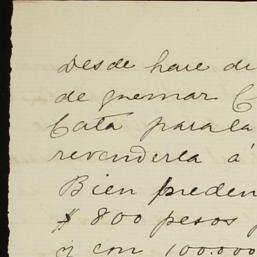 Desde hace di
de quemar C
Cata para la
revenderla á
Bien pueden
$ 800 pesos p
y con 100.000